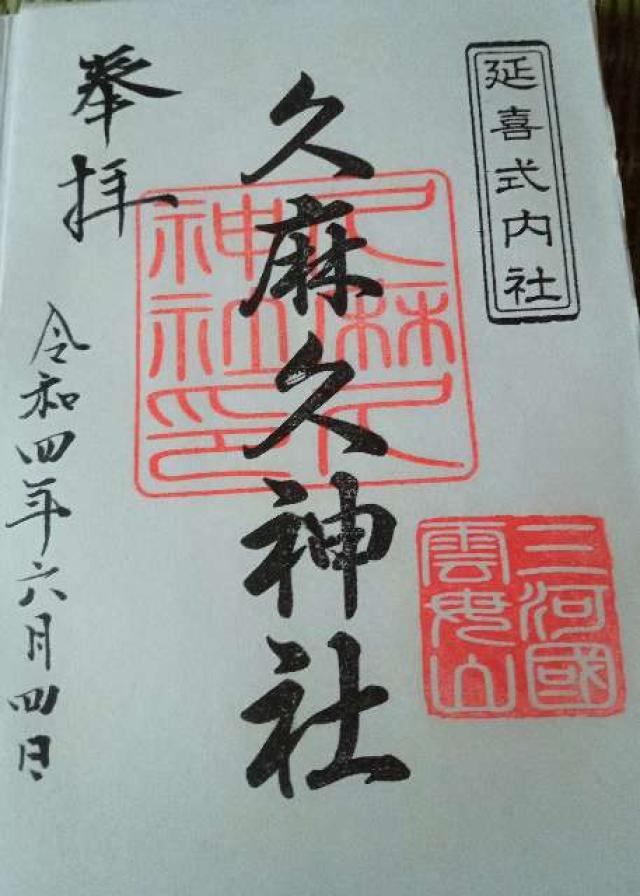 延喜式内社
三河國
雲母山
久麻久神社
久麻久
神社印
奉拝
令和四年六月四日